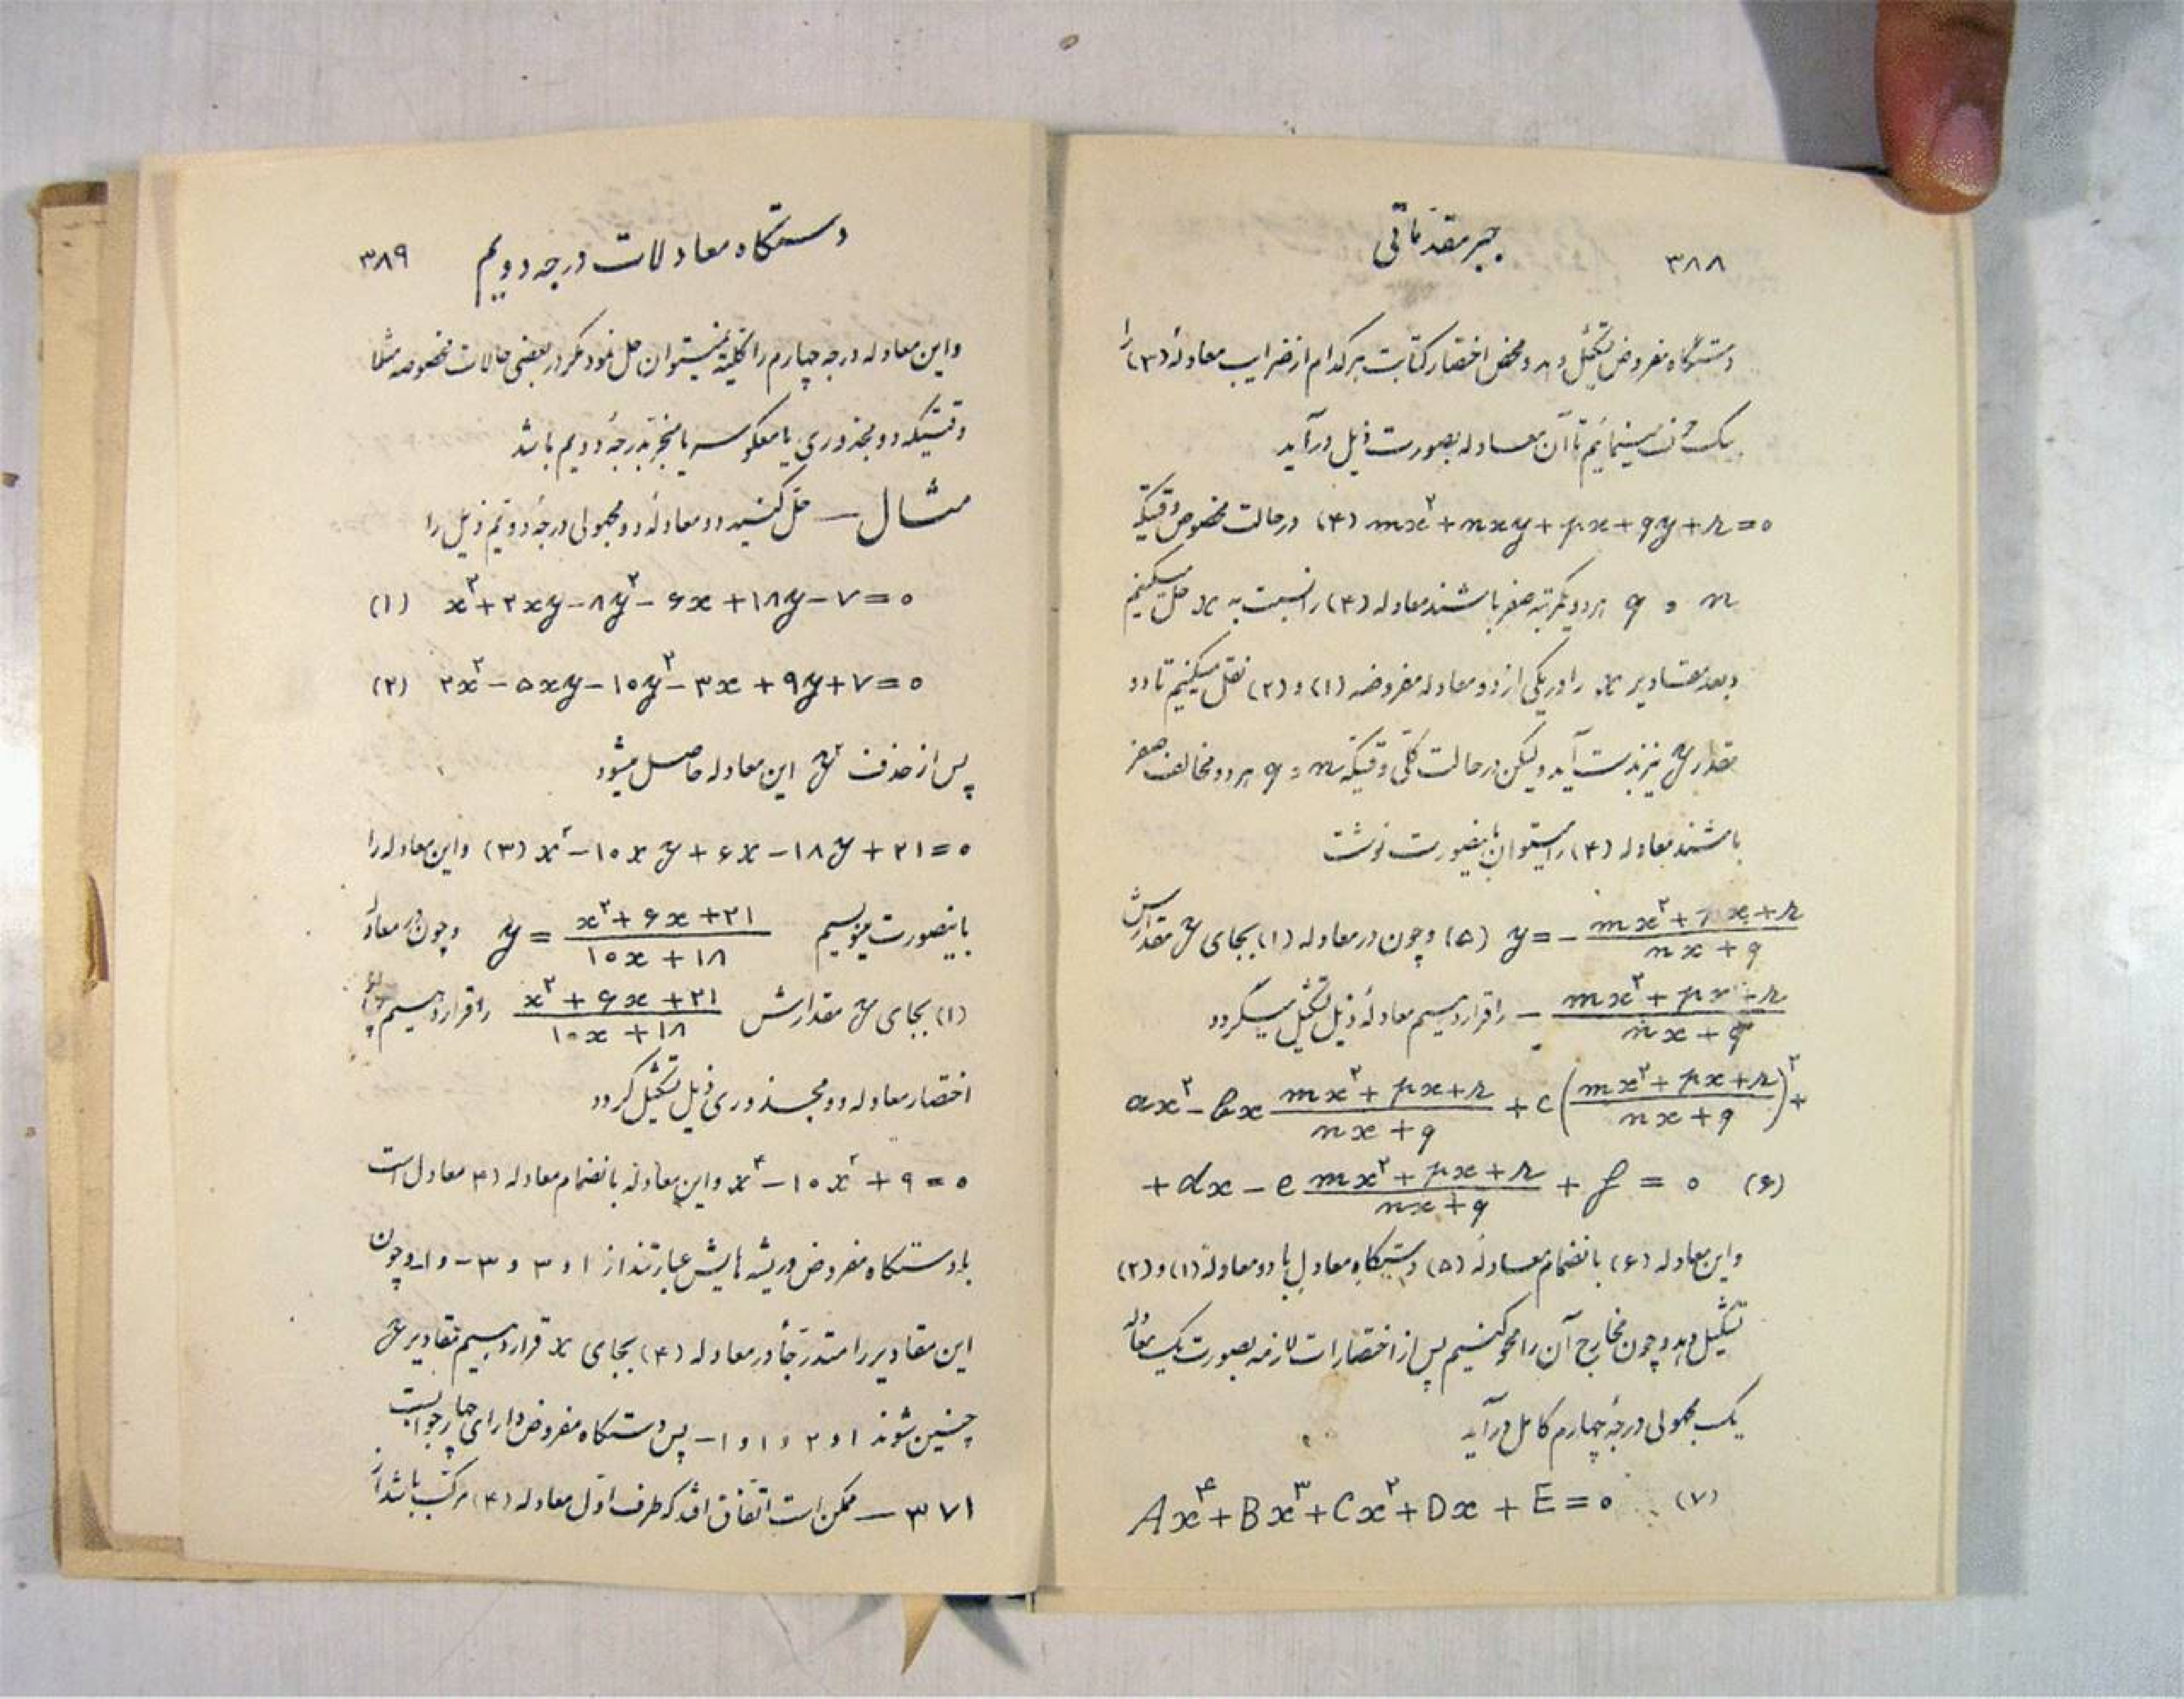 ۳۸۸ جبر مقدماتی
دستگاه مفروض تشکیل دهد و محض اختصار کتابت هر کدام از ضرایب معادلهٔ (۳) را
یک حرف مینمائیم تا آن معادله بصورت ذیل درآید
mx²+nxy+px+qy+r=۰ (۴) در حالت مخصوص وقتیکه
n و q هر دو یکمرتبه صفر باشند معادله (۴) را نسبت به x حل میکنیم
و بعد مقادیر x را در یکی از دو معادله مفروضه (۱) و (۲) نقل میکنیم تا دو
مقدار y نیز بدست آید ولیکن در حالت کلی وقتیکه n و q هر دو مخالف صفر
باشند معادله (۴) را میتوان باینصورت نوشت
y = − (mx²+px+r)/(nx+q) (۵) و چون در معادله (۱) بجای y مقدارش
− (mx²+px+r)/(nx+q) را قرار دهیم معادلهٔ ذیل تشکیل میگردد
ax² − bx (mx²+px+r)/(nx+q) + c((mx²+px+r)/(nx+q))² +
+ dx − e (mx²+px+r)/(nx+q) + f = ۰ (۶)
و این معادله (۶) بانضمام معادلهٔ (۵) دستگاه معادل با دو معادلهٔ (۱) و (۲)
تشکیل دهد و چون مخارج آن را محو کنیم پس از اختصارات لازمه بصورت یک معادله
یک مجهولی درجهٔ چهارم کامل درآید
Ax⁴+Bx³+Cx²+Dx+E=۰ (۷)
دستگاه معادلات درجه دویم ۳۸۹
و این معادله درجه چهارم را کلیةً نمیتوان حل نمود مگر در بعضی حالات مخصوصه مثلا
وقتیکه دو مجذوری یا معکوسه یا منجر بدرجهٔ دویم باشد
مثال — حل کنید دو معادلهٔ دو مجهولی درجهٔ دویم ذیل را
x²+۲xy−۸y²−۶x+۱۸y−۷=۰ (۱)
۲x²−۵xy−۱۰y²−۳x+۹y+۷=۰ (۲)
پس از حذف y² این معادله حاصل میشود
x²−۱۰xy+۶x−۱۸y+۲۱=۰ (۳) و این معادله را
باینصورت مینویسیم y = (x²+۶x+۲۱)/(۱۰x+۱۸) و چون در معادلهٔ
(۱) بجای y مقدارش (x²+۶x+۲۱)/(۱۰x+۱۸) را قرار دهیم
اختصار معادله دو مجذوری ذیل تشکیل گردد
x⁴−۱۰x²+۹=۰ و این معادله بانضمام معادله (۴) معادل است
با دستگاه مفروض و ریشه هایش عبارتند از ۱ و ۳ و ۳- و ۱- و چون
این مقادیر را متدرجاً در معادله (۴) بجای x قرار دهیم مقادیر y
چنین شوند ۱ و ۲ و ۱ و ۱− پس دستگاه مفروض دارای چهار جوابست
۳۷۱ — ممکن است اتفاق افتد که طرف اول معادله (۴) مرکب باشد از